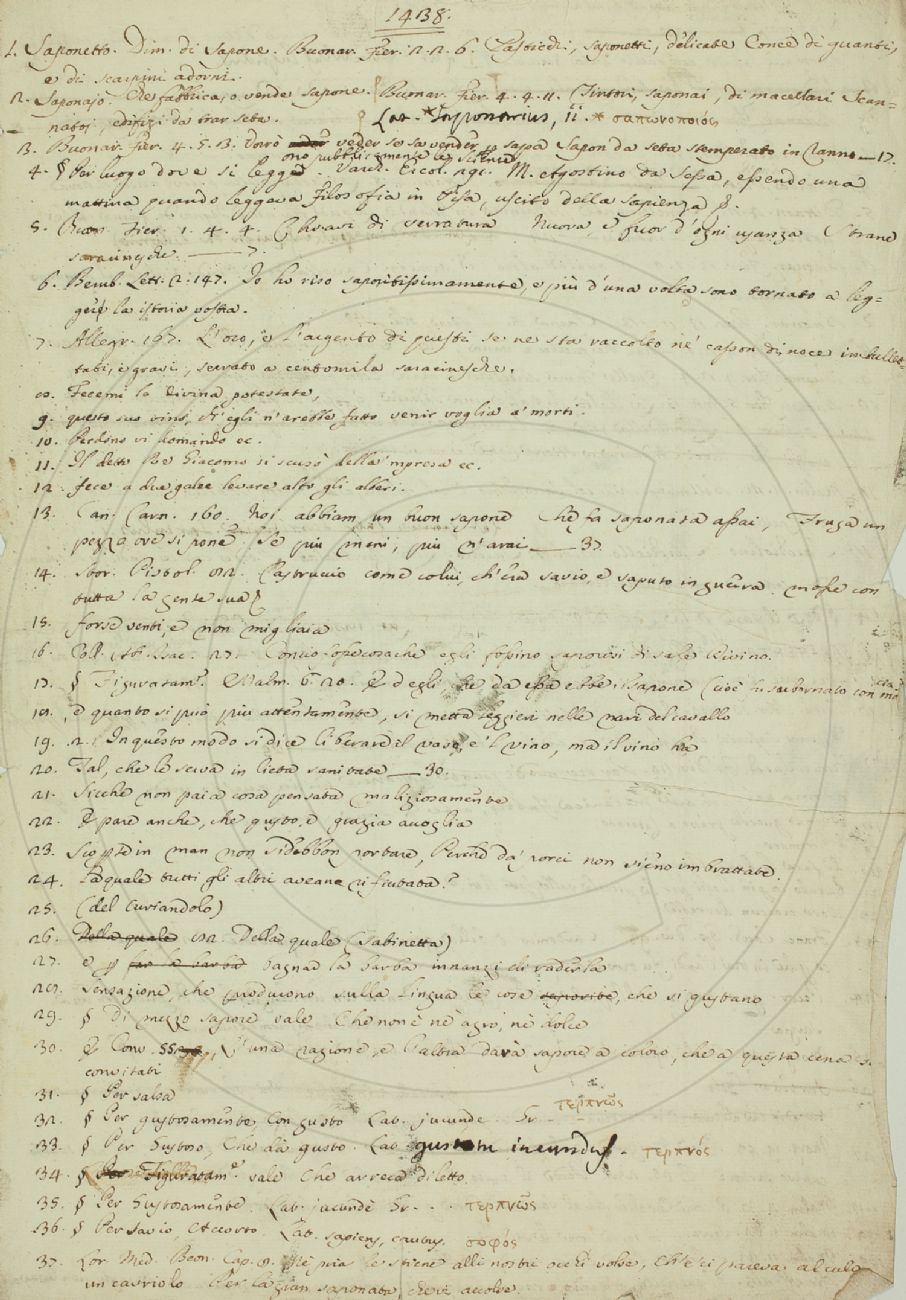 1438.
1. Saponetto. Dim. di Sapone. Buonar. Fier. 2. 2. 6. saponetti, delicate Conce di guanti,
e di scarpini adorni.
2. Saponajo. Che fabbrica, o vende sapone. Buonar. Fier. 4. 4. 11. Tintori, saponai, di macellari Scan-
natoj, edifizi da trar seta. Lat. * Saponarius, ii * σαπωνοποιός
3. Buonar. Fier. 4. 5. 13. Dovò veder se sa vender sapon da seta stemperato in ranno — 17.
no pubblicamente le scienze
4. § Per luogo dove si legge. Varch. Ercol. M. Agostino da Sessa, essendo una
mattina quando leggeva Filosofia in Pisa, uscito della sapienza
5. Buon. Fier. 1. 4. 4. Chiave di serratura Nuova, e fuor d'ogni usanza Strane
saracinesche. — 7.
6. Bemb. Lett. 2. 147. Io ho riso saporitissimamente, e più d'una volta sono tornato a leg-
gere la istoria vostra.
7. Allegr. 167. L'oro, e l'argento di questi se ne sta raccolto ne' casson di noce imbullet-
tati, e gravi, serrato a centomila saracinesche.
8. Fecemi la divina potestate,
9. questo suo vino, ch'egli n'arebbe fatto venir voglia a' morti.
10. Perdono vi domando ec.
11. Il detto Re Giacomo si scusò della 'mpresa ec.
12. fece a due galee levare alto gli alberi.
13. Can. Carn. 160. Noi abbiam un buon sapone Che fa saponata assai, Fruga un
pezzo ove si pone Se più meni, più n'arai — 37
14. Stor. Pistol. 82. Castruccio come colui, ch'era savio, e saputo in guerra mosse con
tutta la gente sua
15. forse venti, e non migliaia
16. Coll. Ab. Isac. 27. Concio fossecosachè egli fossino saporosi di sale divino.
17. § Figuratam.e Malm. 6. 20. E d'egli, che da essa ebbe il sapone (cioè fu subornato con
18. e quanto si può più attentamente, si metta leggieri nelle nari del cavallo
19. 2. In questo modo si dice liberare il vaso, e 'l vino, ma il vino ha
20. Tal, che le serva in lieta sanitate — 30.
21. Sicchè non paia cosa pensata maliziosamente
22. E pare anche, che gusto, e grazia accoglia
23. Scopte in man non si debbon portare, Perchè da' porci non sieno imbrattate.
24. La quale tutti gli altri aveano rifiutata.
25. (del Curiandolo)
26. Della quale 82. Della quale (Sabinetta)
27. e p far la barba bagnar la barba innanzi di raderla
28. Sensazione, che producono sulla lingua le cose saporite, che si gustano
29. § Di mezzo sapore vale Che non è nè agro, nè dolce
30. E Conv. 55. L'una ragione, e l'altra darà sapore a coloro, che a questa cena s.
convitati
31. § Per salsa
32. § Per gustosamente, Con gusto Lat. jucunde Gr. τερπνῶς
33. § Per Gustoso, Che dà gusto. Lat. gustatu iucundus. τερπνός
34. § Per Figuratam.e vale Che arreca diletto
35. § Per Gustosamente. Lat. jucundè Gr. . . τερπνῶς
36. § Per Savio, Accorto. Lat. sapiens, cautus. σοφός
37. Lor. Med. Beon. Cap. 8. Nè pria le schiene alli nostri occhi volse, Ch'e' ci pareva al culo
un cavriolo Per la gran saponata, che vi accolse.